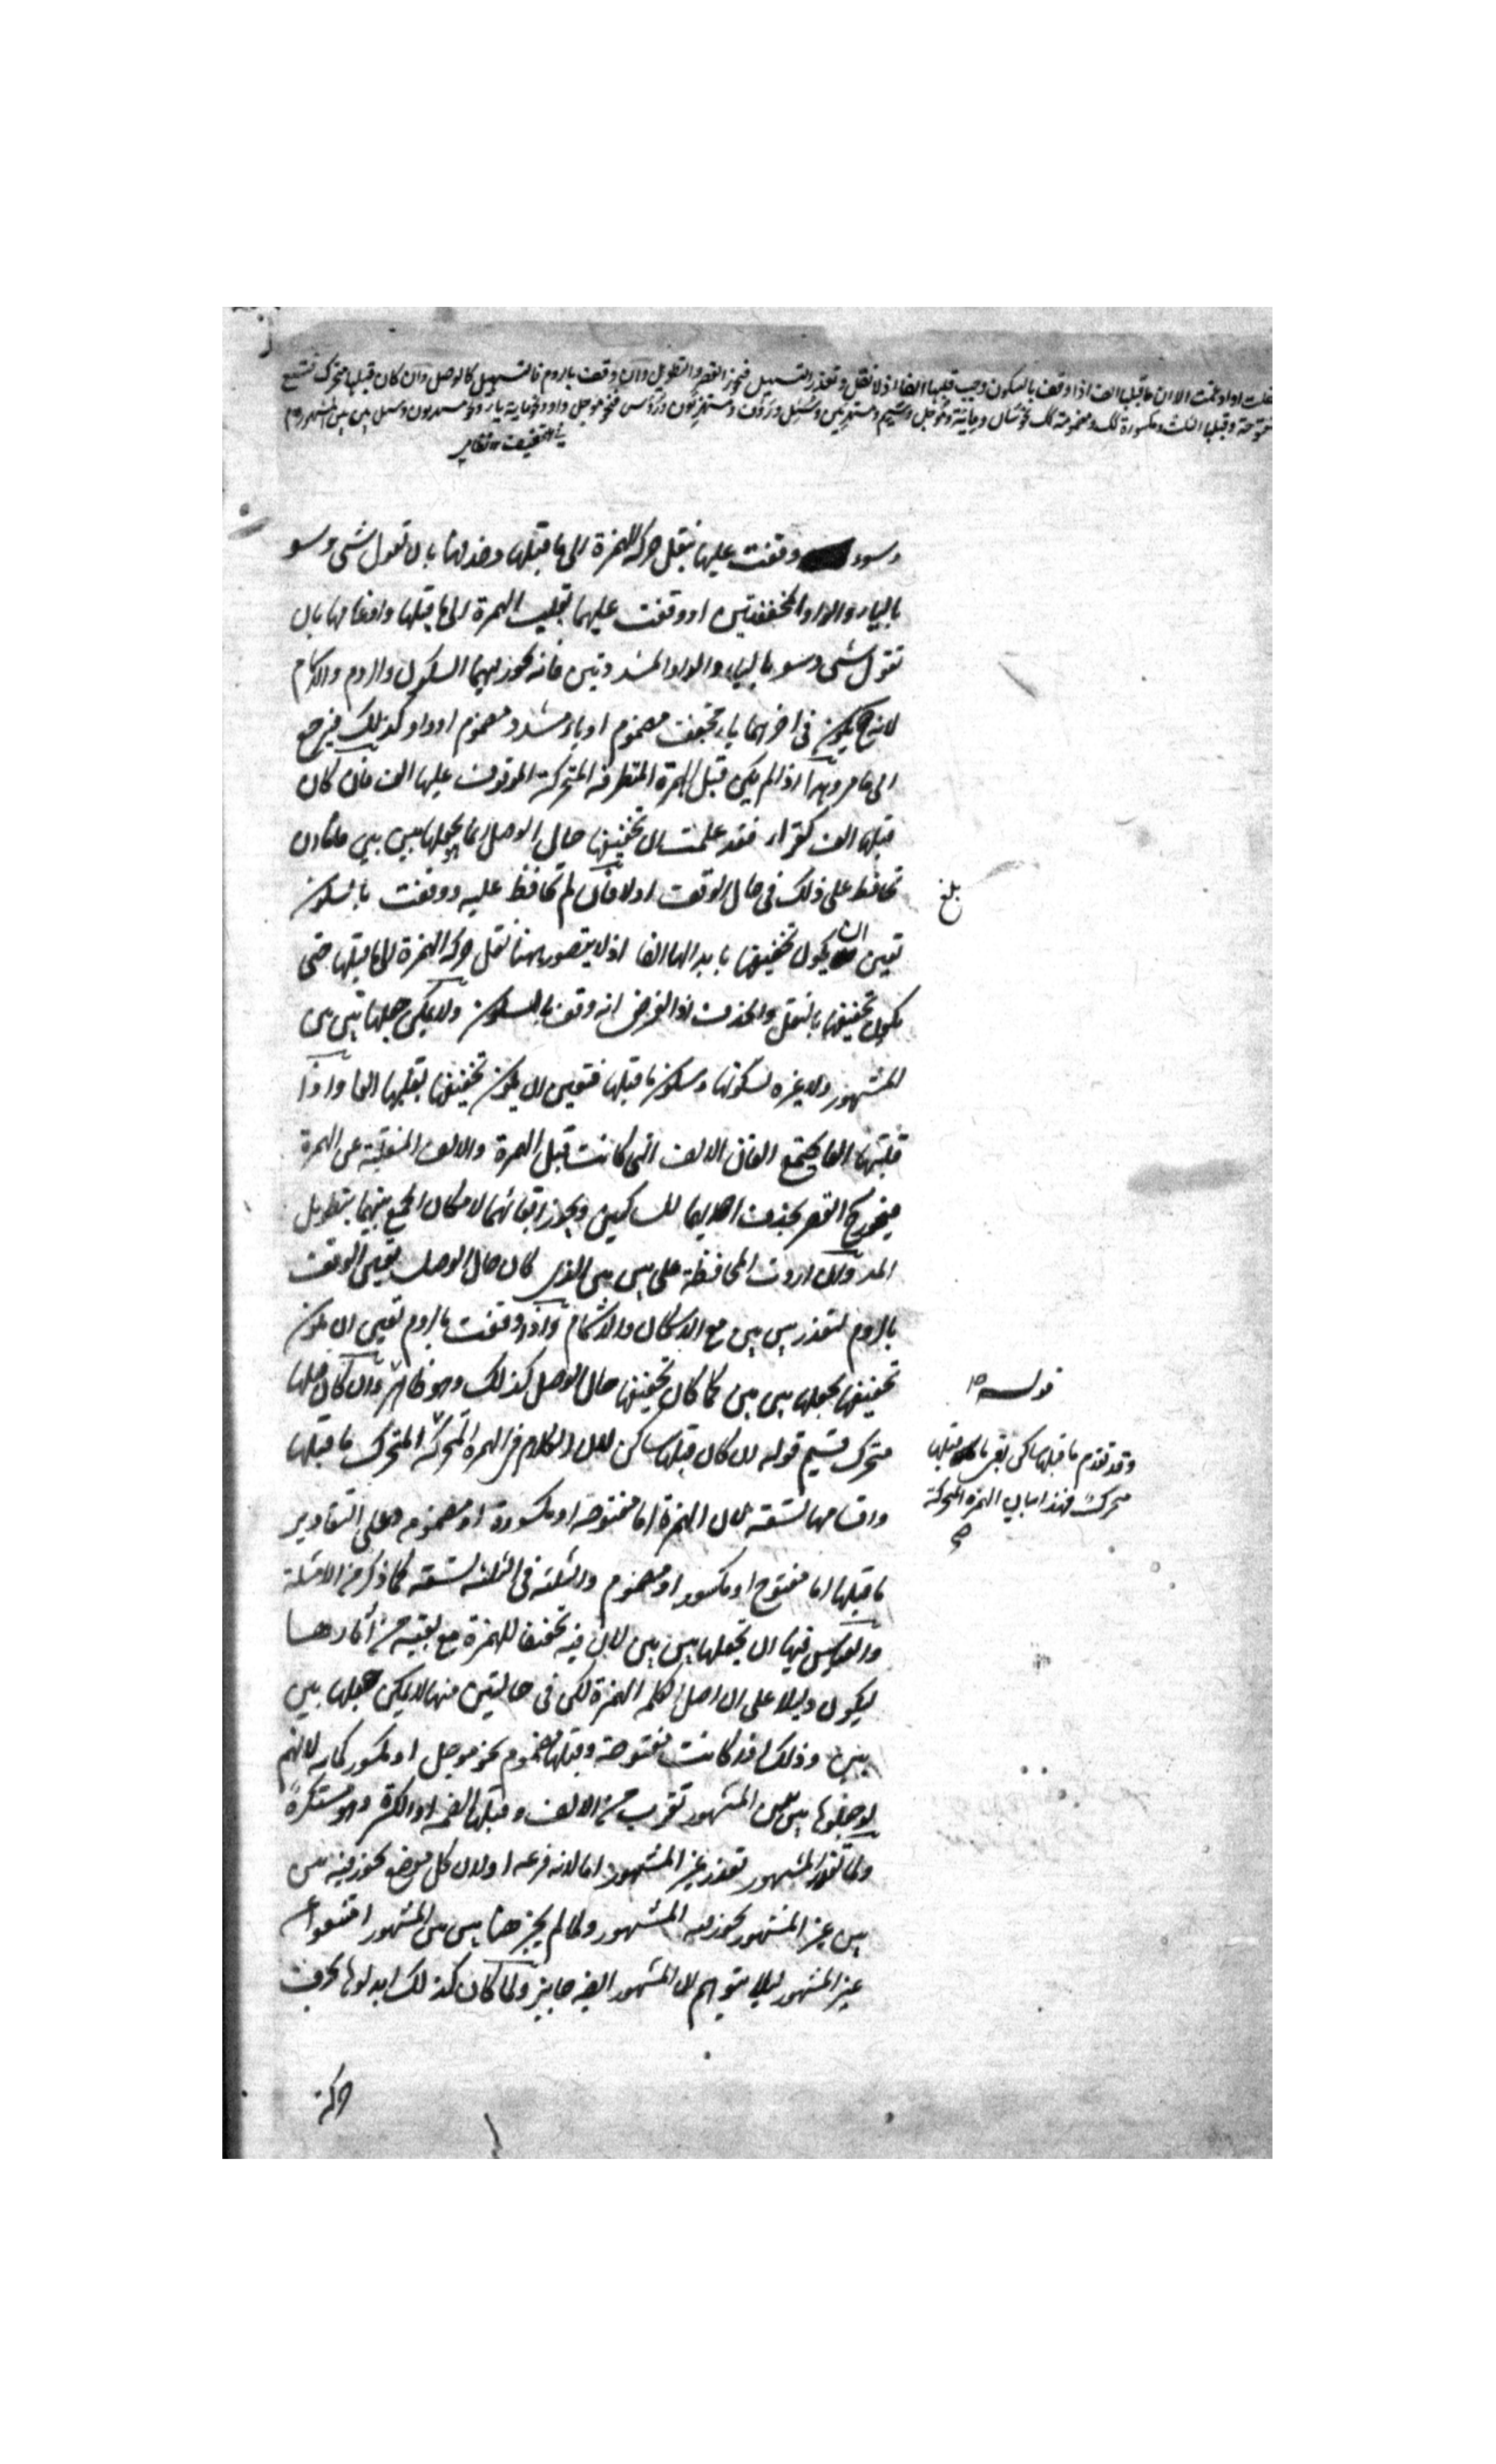 نقلت او ادغمت الا ان ما قبلها الف اذا وقف بالسكون وجب قلبها الفا اذ لا نقل وتعذر التسهيل فيجوز القصر والتطويل وان وقف بالروم فالتسهيل كالوصل وان كان قبلها متحرك فتسع
مفتوحة وقبلها الثلث ومكسورة كذلك ومضمومة كذلك نحو سأل ومائة ومؤجل وسئم ومستهزئين وسئل ورؤف ومستهزئون ورؤس فنحو مؤجل واو ونحو مائة ياء ونحو مستهزئون وسئل بين بين المشهور
وسوء وقفت عليها بنقل حركة الهمزة الى ما قبلها وحذفها بان تقول شى وسو
بالياء والواو المخففتين او وقفت عليهما بقلب الهمزة الى ما قبلها وادغامها بان
تقول شى وسو بالياء والواو المشددتين فانه يجوز فيهما السكون والروم والاشمام
لانه ح يكون فى اخرهما ياء مخفف مضموم او ياء مشدد مضموم او واو كذلك فيرجع
الى ما مر وهذا اذا لم يكن قبل الهمزة المتطرفة المتحركة الموقوف عليها الف فان كان
قبلها الف كقراء فقد علمت ان تخفيفها حال الوصل انما هو بجعلها بين بين فاما ان
تحافظ على ذلك فى حال الوقف اولا فان لم تحافظ عليه ووقفت بالسكون
تعين ان يكون تخفيفها بابدالها الفا اذ لا يتصور ههنا نقل حركة الهمزة الى ما قبلها حتى
يكون تخفيفها بالنقل والحذف اذ الفرض انه وقف بالسكون ولا يمكن جعلها بين بين
المشهور ولا غيره لسكونها وسكون ما قبلها فتعين ان يكون تخفيفها بقلبها الفا واذا
قلبتها الفا يجتمع الفان الالف التى كانت قبل الهمزة والالف المنقلبة عن الهمزة
فيجوز ح القصر بحذف احديهما للساكنين ويجوز ابقائهما لامكان الجمع بينهما بتطويل
المد وان اردت المحافظة على بين بين الذى كان حال الوصل تعين الوقف
بالروم لتعذر بين بين مع الاسكان والاشمام واذا وقفت بالروم تعين ان يكون
تخفيفها بجعلها بين بين كما كان تخفيفها حال الوصل كذلك وهو ظاهر وان كان قبلها
متحرك قسيم قوله ان كان قبلها ساكن لان الكلام فى الهمزة المتحركة المتحرك ما قبلها
واقسامها تسعة لان الهمزة اما مفتوحة او مكسورة او مضمومة وعلى التقادير
ما قبلها اما مفتوح او مكسور او مضموم والثلثة فى الثلثة تسعة كما ذكر من الامثلة
والقياس فيها ان تجعلها بين بين لان فيه تخفيفا للهمزة مع بقية من آثارها
ليكون دليلا على ان اصل الكلمة الهمزة لكن فى حالتين منها لا يمكن جعلها بين
بين وذلك اذا كانت مفتوحة وقبلها مضموم نحو مؤجل او مكسور كمائة لانهم
لو جعلوها بين بين المشهور تقرب من الالف وقبلها الضمة او الكسرة وهو مستكره
ولما تعذر المشهور تعذر غير المشهور اما لانه فرعه او لان كل موضع يجوز فيه بين
بين غير المشهور يجوز فيه المشهور ولما لم يجز هنا بين بين المشهور امتنعوا عن
غير المشهور لئلا يتوهم ان المشهور ايضا جايز ولما كان كذلك ابدلوها بحرف
حركة
بلغ
قوله
وقد تقدم ما قبلها ساكن بقى ما قبلها
متحرك فهذا بيان الهمزة المتحركة